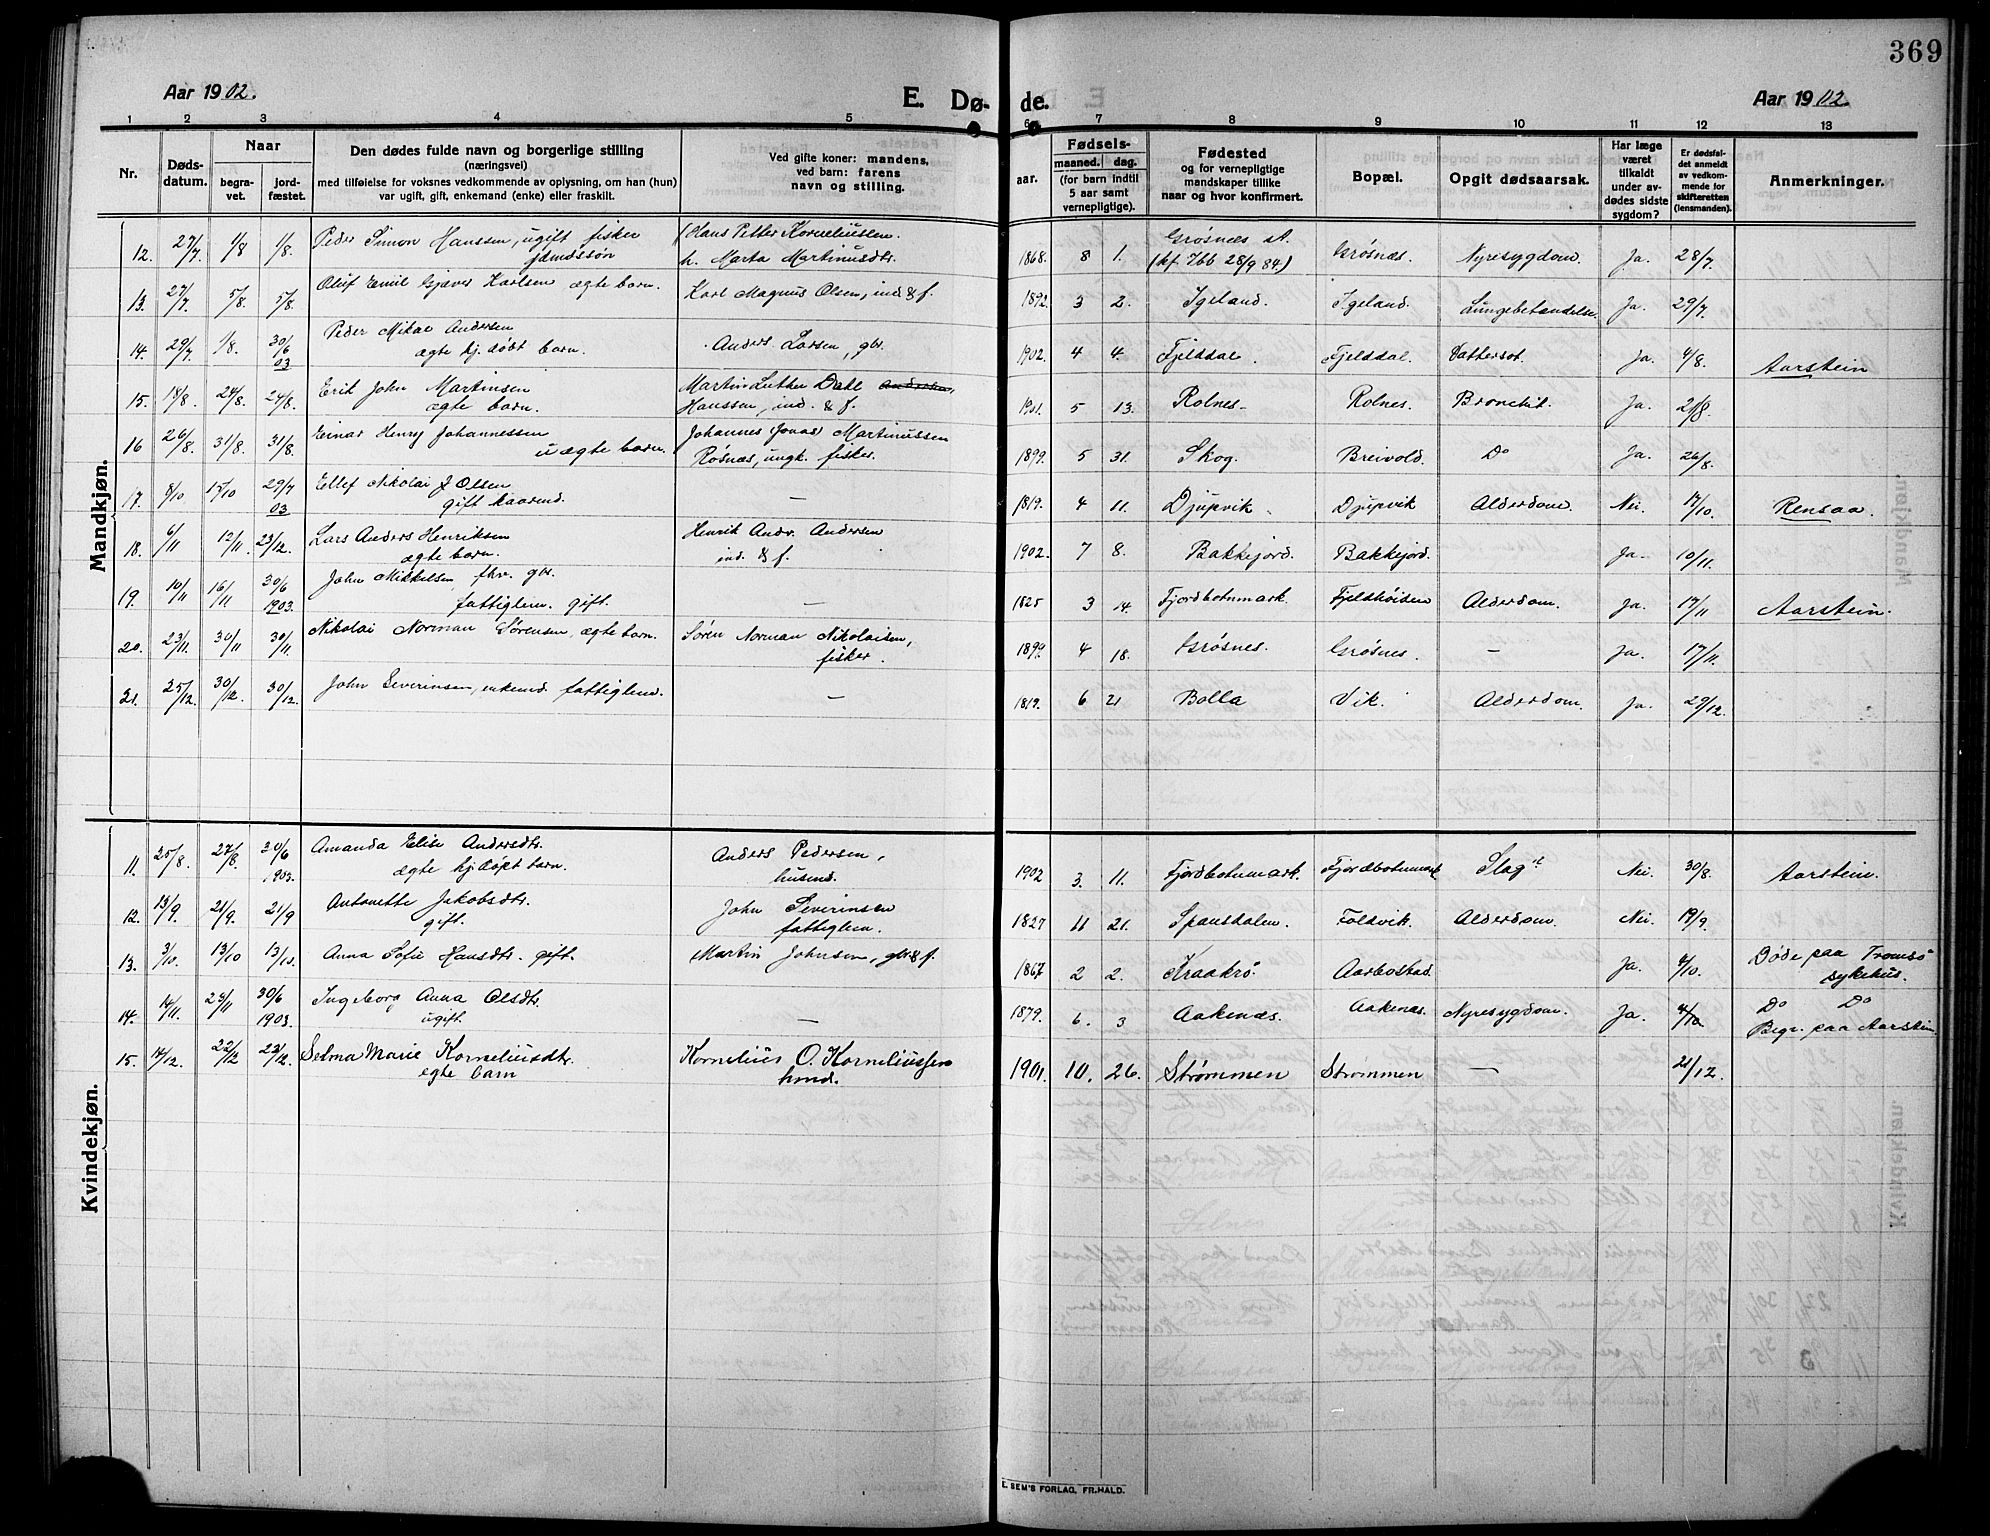 369
Aar 1902.
E. Dø-
de.
Aar 1902.
1 2 3 4 5 6 7 8 9 10 11 12 13
Nr.
Døds-
datum.
Naar
begra-
vet.
jord-
fæstet.
Den dødes fulde navn og borgerlige stilling
(næringsvei)
med tilføielse for voksnes vedkommende av oplysning, om han (hun)
var ugift, gift, enkemand (enke) eller fraskilt.
Ved gifte koner: mandens,
ved barn: farens
navn og stilling.
Fødsels-
aar.
maaned. dag.
(for barn indtil
5 aar samt
vernepligtige).
Fødested
og for vernepligtige
mandskaper tillike
naar og hvor konfirmert.
Bopæl.
Opgit dødsaarsak.
Har læge
været
tilkaldt
under av-
dødes sidste
sygdom?
Er dødsfal-
det anmeldt
av vedkom-
mende for
skifteretten
(lensmanden).
Anmerkninger.
Mandkjøn.
12. 27/7 1/8 1/8. Peder Simon Hanssen, ugift fisker (Hans Petter Korneliussen 1868. 8 1. Grøsnes st. Grøsnes. Nyresygdom. Ja. 28/7.
h. Marta Martinusdtr. (kf. Ibb 28/9 84.)
13. 27/7. 5/8. 5/8. Oluf Emil Gjæver Karlsen ægte barn. Karl Magnus Olsen, ind & f. 1892. 3 2. Igeland. Igeland. Lungebetændelse. Ja. 29/7
14. 29/7 1/8. 30/6 03 Peder Mikal Andersen Anders Larsen, gbr. 1902. 4 4. Fjelddal. Fjelddal. Vattersot. Ja. 4/8. Aarstein
ægte hj. døbt barn.
15. 18/8. 24/8. 24/8. Erik John Martinsen Martin Luther Dahl 1901. 5 13. Rolnes. Rolnes. Bronchit. Ja. 21/8.
ægte barn. Hanssen, ind. & f.
16 26/8. 31/8 31/8. Einar Henry Johannessen Johannes (Jonas) Martinussen 1899. 5 31. Skog. Breivold. Do Ja. 26/8.
uægte barn. Røsnæs, ungk. fisker.
17. 8/10 15/10 29/7 03 Ellef Nikolai J Olsen — 1819. 4 11. Djupvik. Djupvik Alderdom. Nei. 17/10. Rensaa.
gift kaarmd.
18. 6/11 12/11. 23/12. Lars Anders Henriksen Henrik Andr. Andersen 1902. 7 8. Bakkejord. Bakkejord. Ja. 10/11.
ægte barn. ind. & f.
19. 10/11 16/11 30/6 1903. John Mikkelsen, fhv. gbr. — 1825 3 14. Fjordbotnmark. Fjeldhøisen Alderdom. Ja. 17/11 Aarstein.
fattiglem. gift.
20. 23/11. 30/11 30/11. Nikolai Norman Sørensen, ægte barn. Søren Norman Nikolaisen, 1899. 4 18. Grøsnes. Grøsnes. — Ja. 17/11.
fisker.
21. 25/12. 30/12. 30/12. John Severinsen, enkemd. fattiglem. — 1819. 6 21 Bolla Vik. Alderdom. Ja. 29/12.
Kvindekjøn.
11. 25/8. 27/8 30/6 1903. Amanda Elise Andersdtr. Anders Pedersen, 1902 3. 11. Fjordbotnmark. Fjordbotnmark. Slag Nei. 30/8. Aarstein.
ægte hj. døpt barn. husmd.
12. 13/9. 21/9. 21/9 Antonette Jakobsdtr. John Severinsen 1827 11 21. Spansdalen. Foldvik. Alderdom. Nei 19/9.
gift. fattiglem.
13. 3/10. 13/10 13/10. Anna Sofie Hansdtr. gift. Martin Johnsen, gbr & f. 1867 2 2. Kraakrø. Aarbostad. Ja. 4/10. Døde paa Tromsø
sykehus.
14. 14/11. 23/11 30/6 1903. Ingeborg Anna Olsdtr. — 1879. 6. 3 Aakenæs. Aakenæs. Nyresygdom. Ja. 4/12 Do Do
ugift. Begr. paa Aarstein.
15. 14/12. 22/12 22/12. Selma Marie Korneliusdtr. Kornelius O. Korneliussen 1901. 10. 26. Strømmen Strømmen — 21/12.
egte barn hmd.
E. SEM'S FORLAG, FR.HALD.